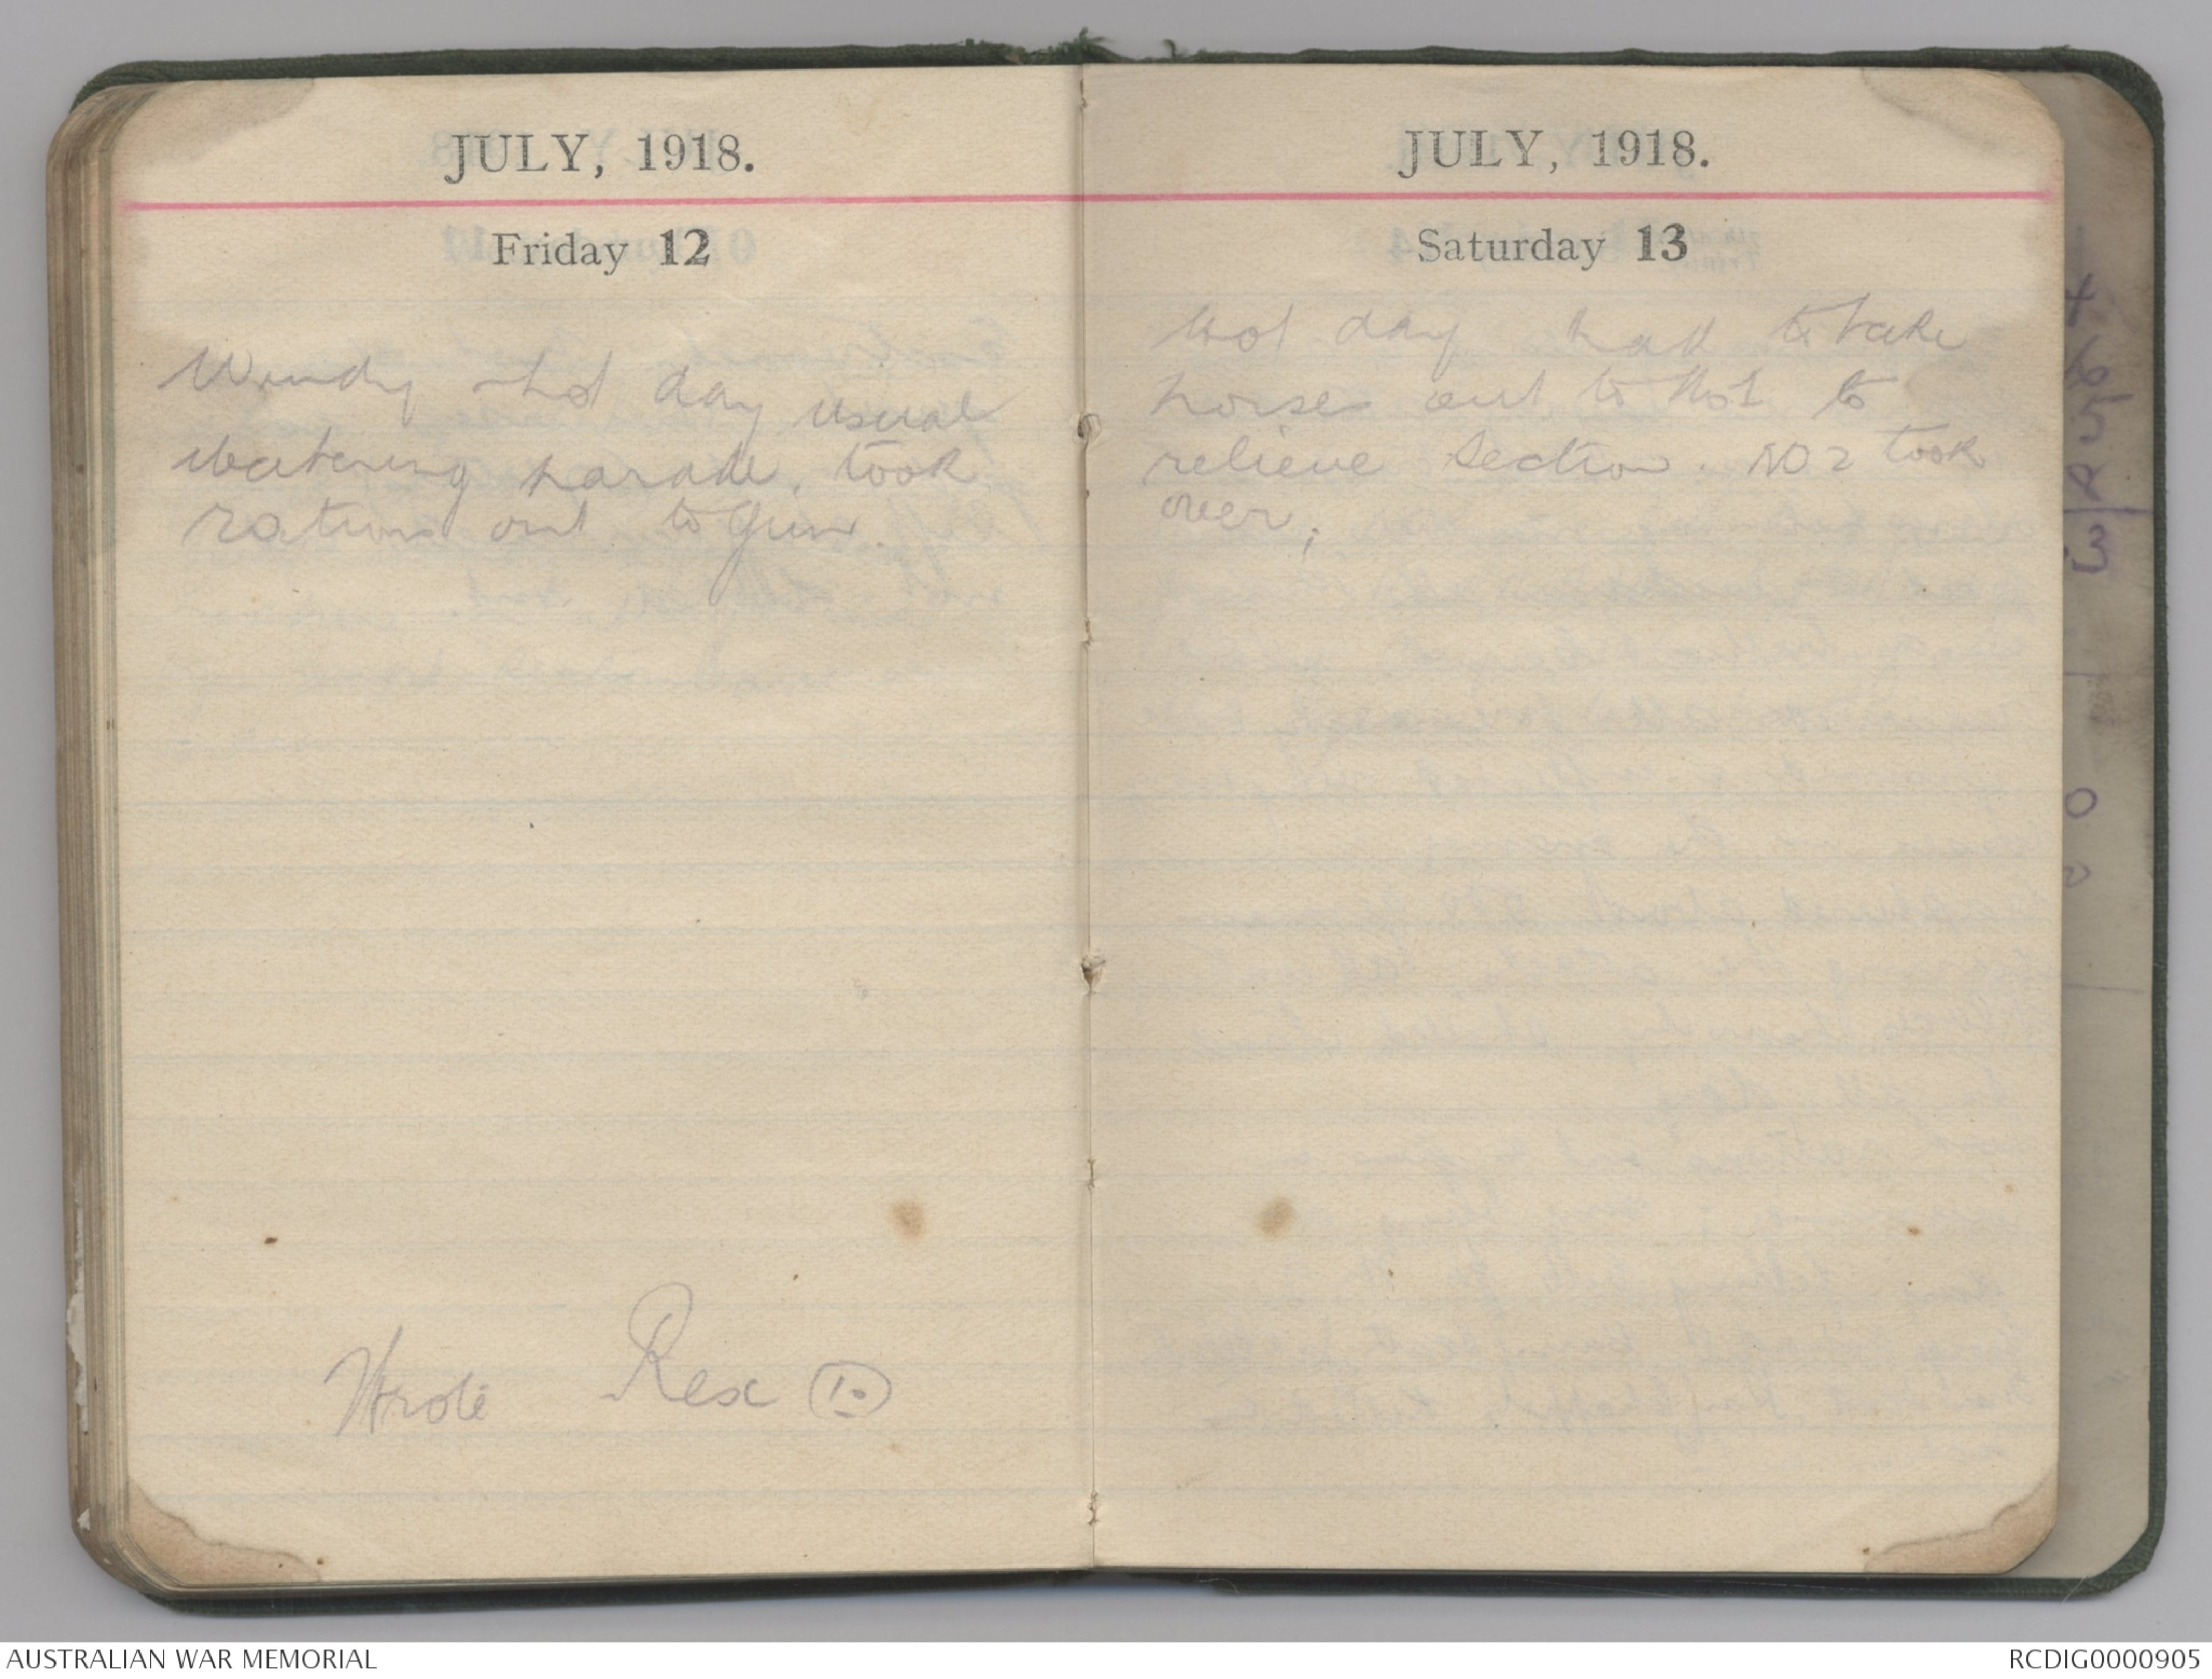 JULY, 1918.
Friday 12
Windy hot day usual
watering parade, took
rations out to Gun.
Wrote Rex (10)
JULY, 1918.
Saturday 13
Hot day had to take
horses out to No 1 to
relieve section. NO 2 took
over,
4
6
5
8
3
0
AUSTRALIAN WAR MEMORIAL
RCDIG0000905